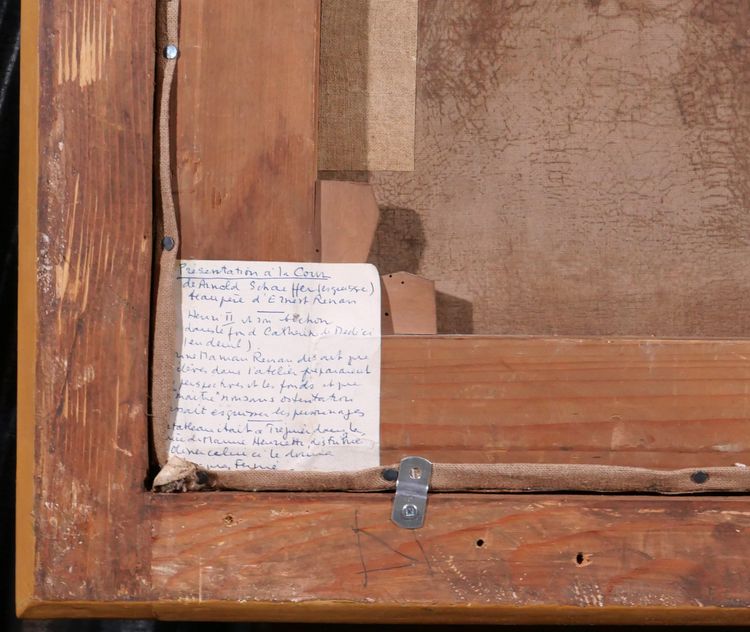 Présentation à la Cour
de Arnold Schaeffer (esquisse)
beau père d'Ernest Renan
Henri II et son bichon
dans le fond Catherine de Medici
(en deuil)
Maman Renan disait que
élèves dans l'atelier préparaient
perspectives et les fonds et que
"maître" non sans ostentation
esquisser les personnages
tableau était à Tréguier dans la
de Mame Henriette,
celui ci le donna